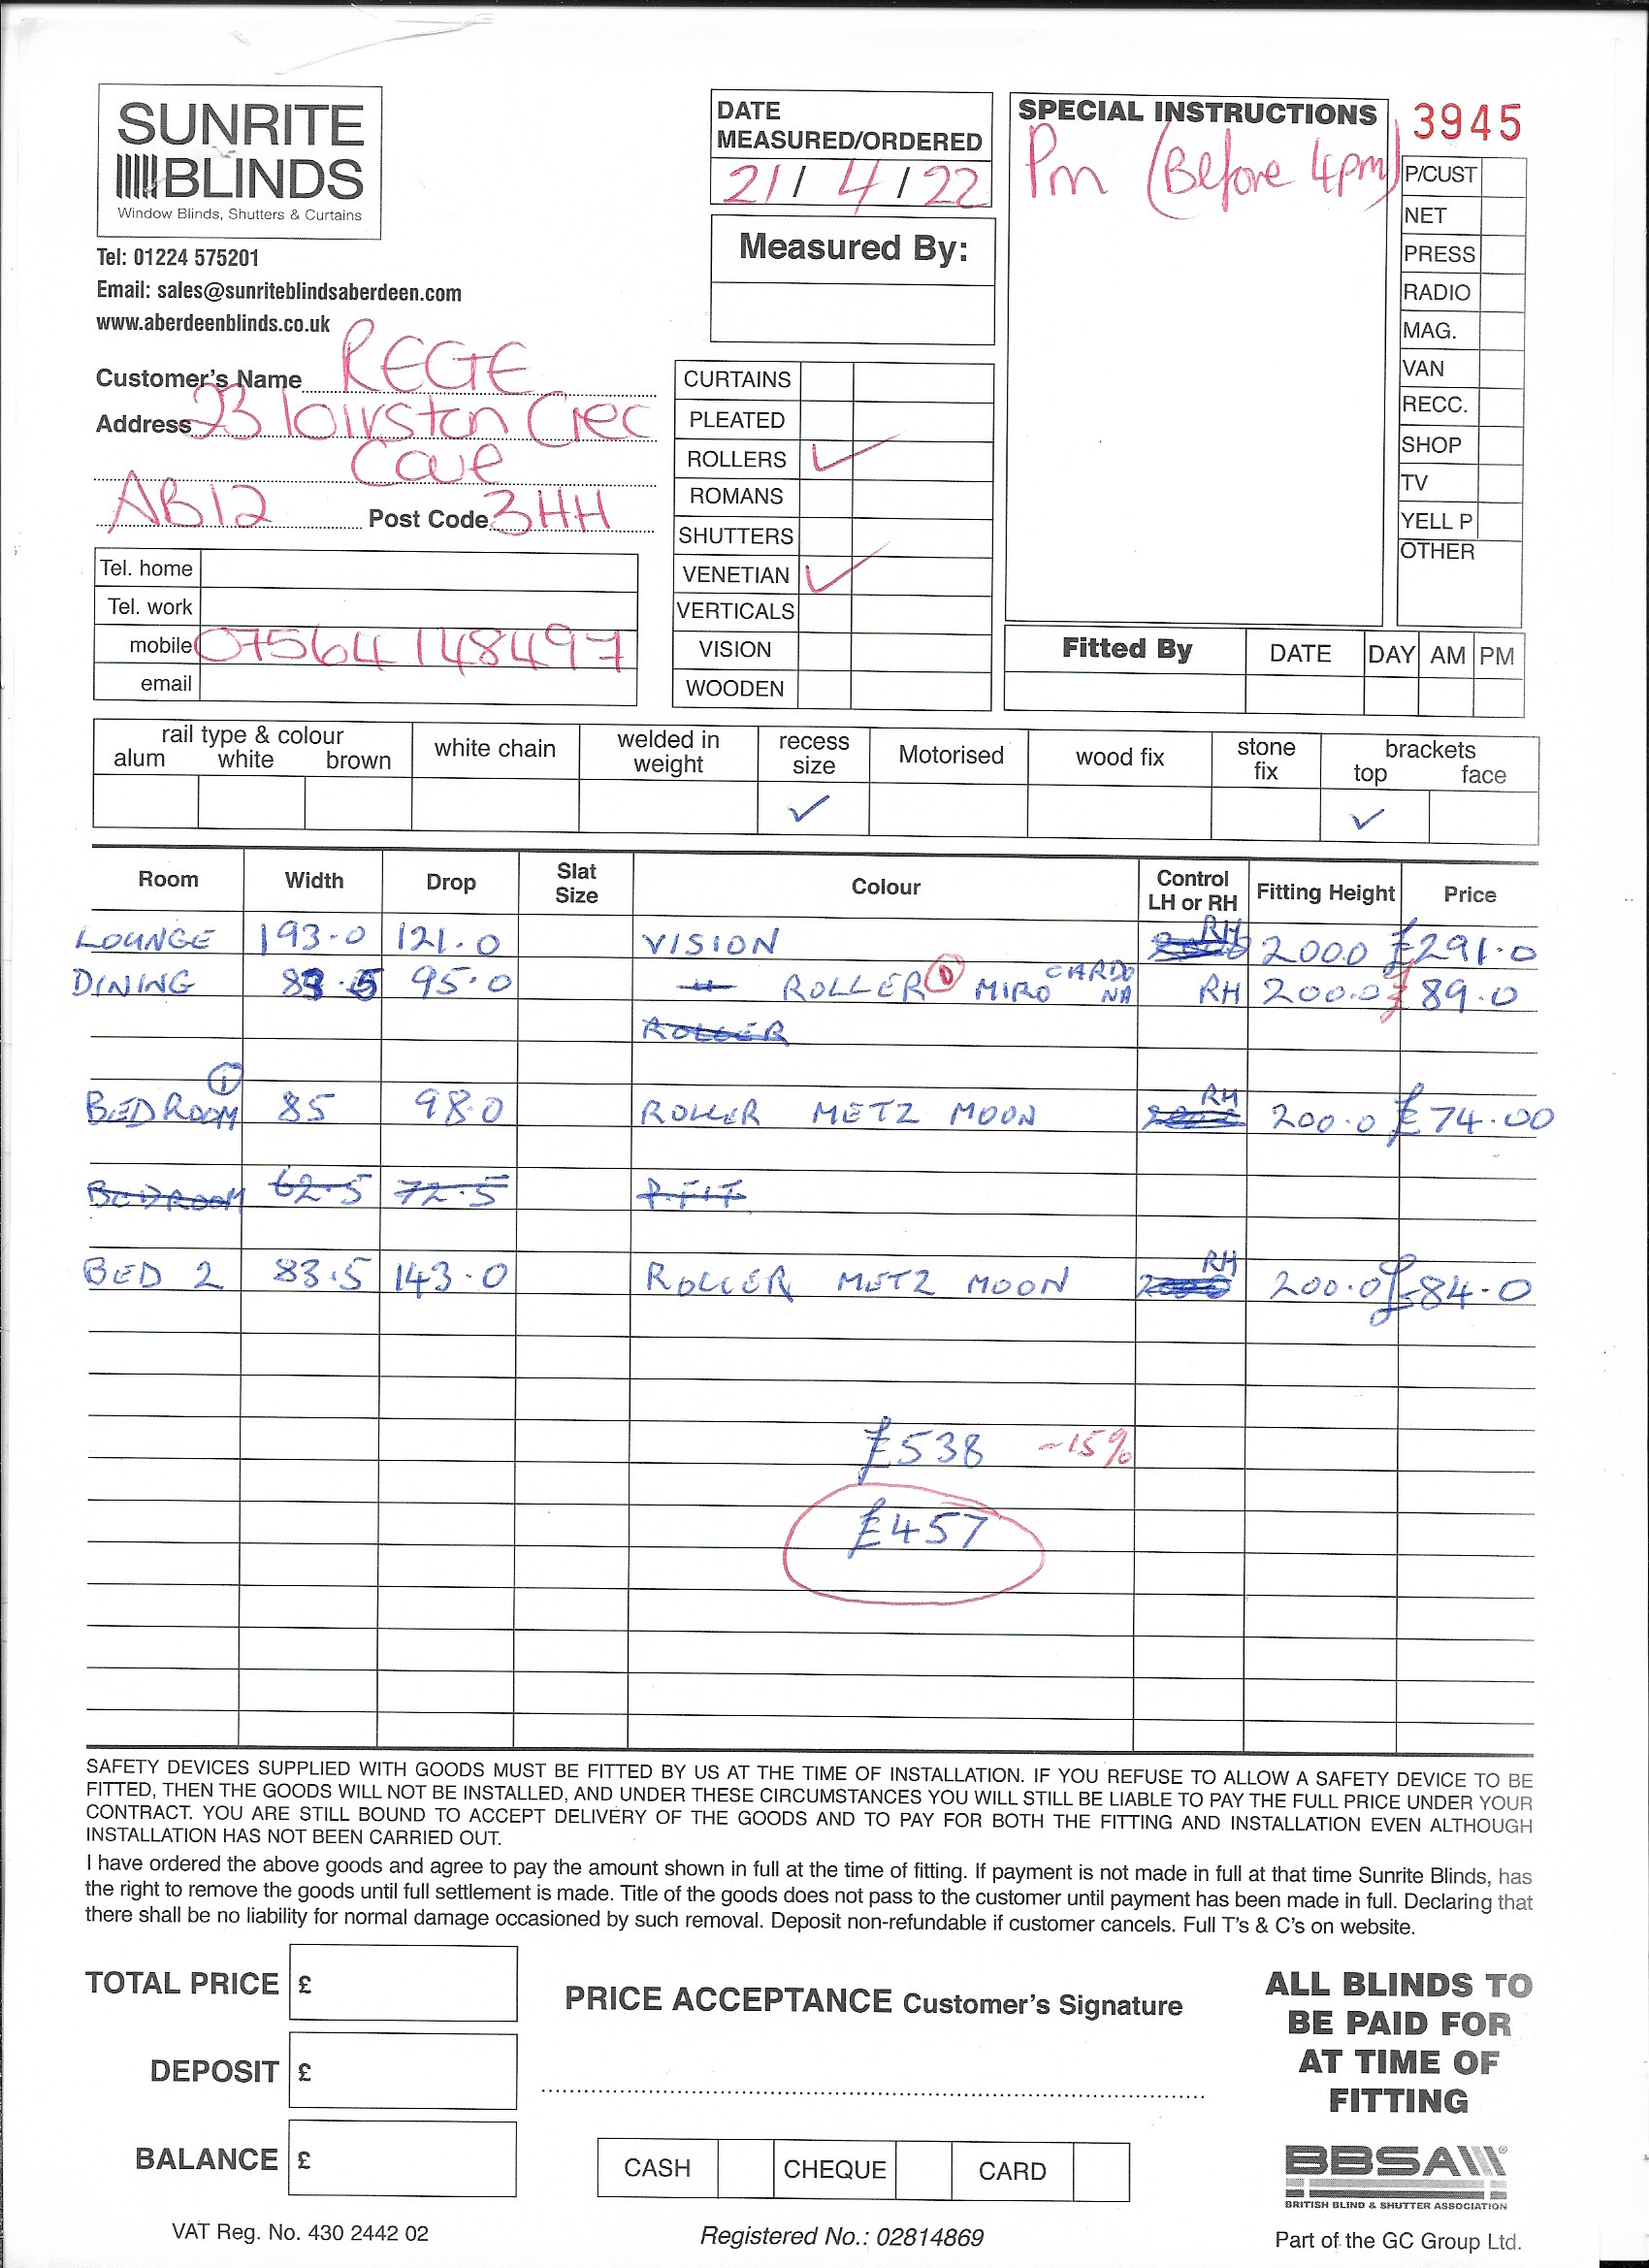 SUNRITE
BLINDS
Window Blinds, Shutters & Curtains
Tel: 01224 575201
Email: sales@sunriteblindsaberdeen.com
www.aberdeenblinds.co.uk
DATE
MEASURED/ORDERED
21/4/22
Measured By:
SPECIAL INSTRUCTIONS
Pm (Before 4pm)
3945
P/CUST
NET
PRESS
RADIO
MAG.
VAN
RECC.
SHOP
TV
YELL P
OTHER
Customer's Name REGE
Address 23 Loirston Cres
Cove
AB12 Post Code 3HH
Tel. home
Tel. work
mobile 07564 148497
email
CURTAINS
PLEATED
ROLLERS ✓
ROMANS
SHUTTERS
VENETIAN ✓
VERTICALS
VISION
WOODEN
Fitted By DATE DAY AM PM
rail type & colour
alum white brown
white chain
welded in weight
recess size ✓
Motorised
wood fix
stone fix
brackets
top ✓ face
Room Width Drop Slat Size Colour Control LH or RH Fitting Height Price
LOUNGE 193.0 121.0 VISION RH 200.0 £291.0
DINING 83.5 95.0 ROLLER MIRO CARDONA RH 200.0 £89.0
ROLLER
BEDROOM 1 85 98.0 ROLLER METZ MOON RH 200.0 £74.00
BEDROOM 62.5 72.5 P.FIT
BED 2 83.5 143.0 ROLLER METZ MOON RH 200.0 £84.0
£538 -15%
£457
SAFETY DEVICES SUPPLIED WITH GOODS MUST BE FITTED BY US AT THE TIME OF INSTALLATION. IF YOU REFUSE TO ALLOW A SAFETY DEVICE TO BE
FITTED, THEN THE GOODS WILL NOT BE INSTALLED, AND UNDER THESE CIRCUMSTANCES YOU WILL STILL BE LIABLE TO PAY THE FULL PRICE UNDER YOUR
CONTRACT. YOU ARE STILL BOUND TO ACCEPT DELIVERY OF THE GOODS AND TO PAY FOR BOTH THE FITTING AND INSTALLATION EVEN ALTHOUGH
INSTALLATION HAS NOT BEEN CARRIED OUT.
I have ordered the above goods and agree to pay the amount shown in full at the time of fitting. If payment is not made in full at that time Sunrite Blinds, has
the right to remove the goods until full settlement is made. Title of the goods does not pass to the customer until payment has been made in full. Declaring that
there shall be no liability for normal damage occasioned by such removal. Deposit non-refundable if customer cancels. Full T's & C's on website.
TOTAL PRICE £
DEPOSIT £
BALANCE £
PRICE ACCEPTANCE Customer's Signature
CASH CHEQUE CARD
ALL BLINDS TO
BE PAID FOR
AT TIME OF
FITTING
BBSA
BRITISH BLIND & SHUTTER ASSOCIATION
VAT Reg. No. 430 2442 02
Registered No.: 02814869
Part of the GC Group Ltd.